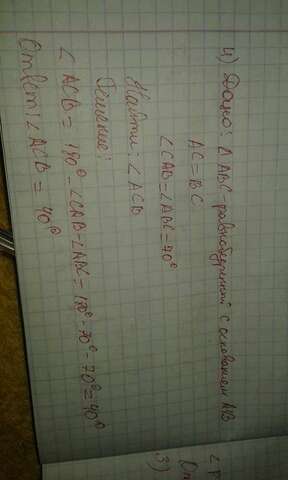 4) Дано: Δ ABC равнобедренный с основанием AB
AC = BC
∠CAB = ∠ABC = 70°
Найти: ∠ACB
Решение:
∠ACB = 180° - ∠CAB - ∠ABC = 180° - 70° - 70° = 40°
Ответ: ∠ACB = 40°
3)